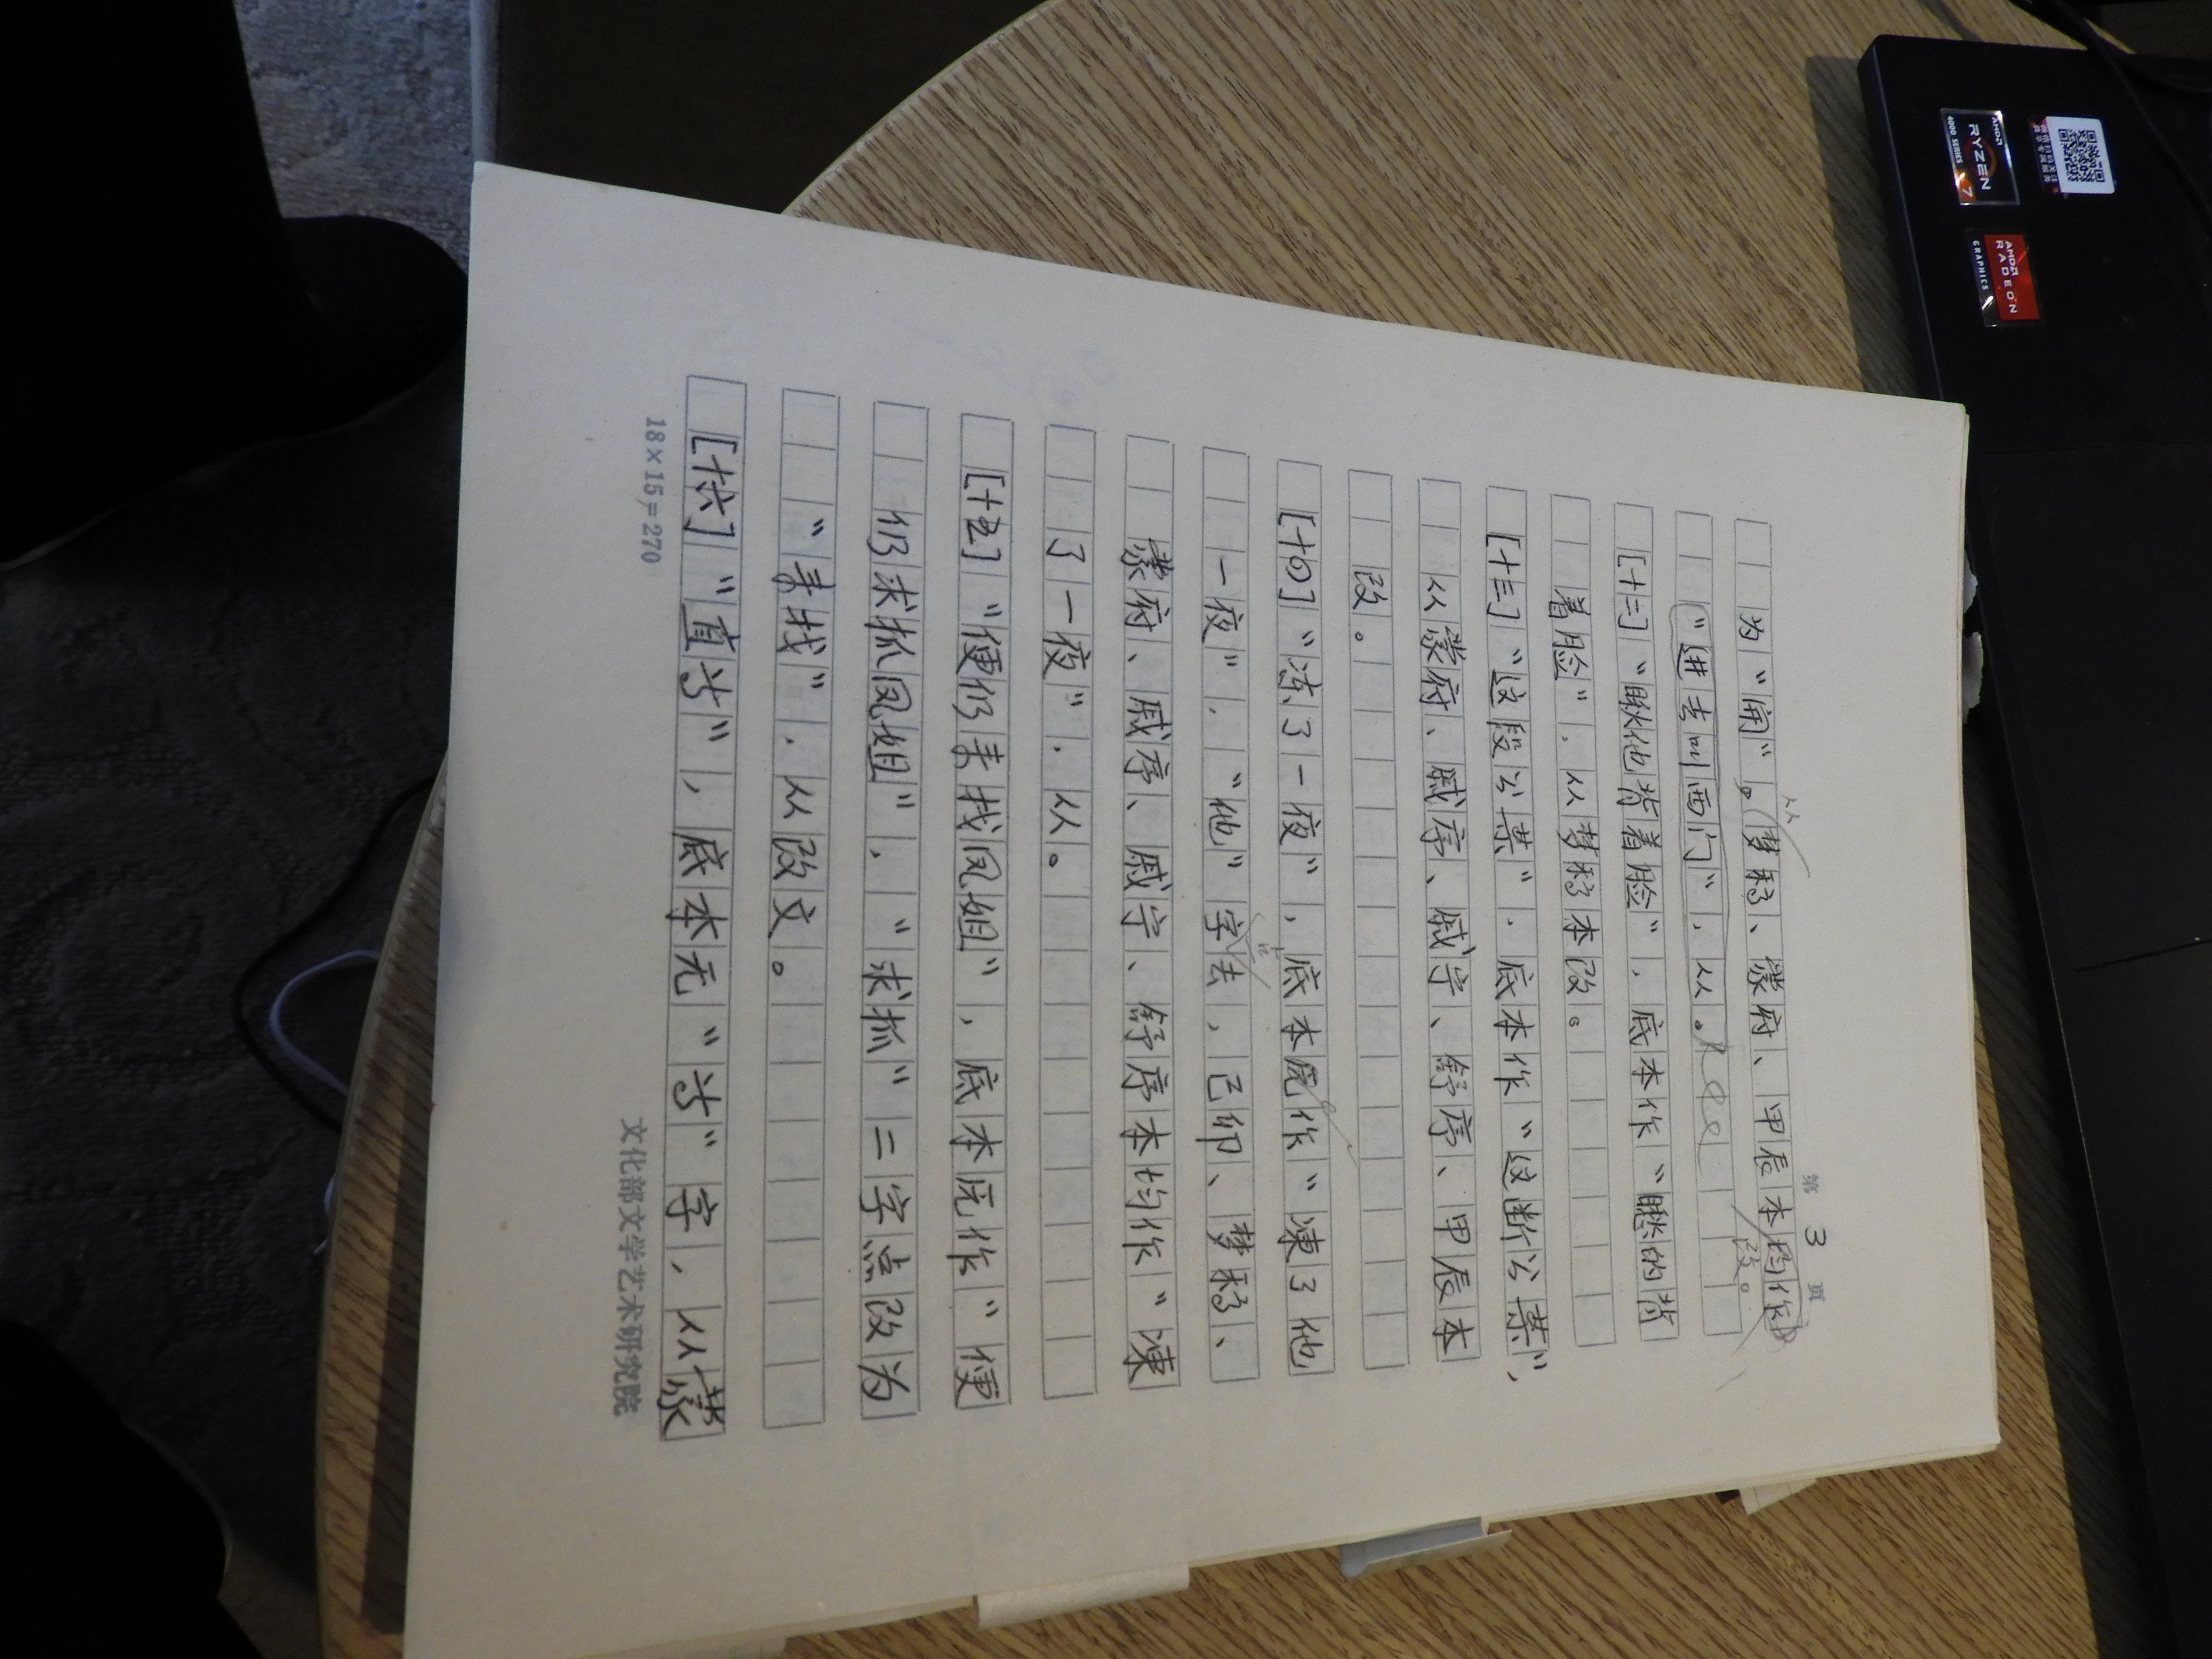 第 3 页
为“角”，从梦稿、蒙府、甲辰本均作
改。
“进去叫西门”，从。
[十二]“瞅他背着脸”，底本作“瞅的背
着脸”，从梦稿本改。
[十三]“这段公案”，底本作“这断公案”，
从蒙府、戚序、戚宁、舒序、甲辰本
改。
[十四]“冻了一夜”，底本原作“凍了他
一夜”，“他”字点去，己卯、梦稿、
蒙府、戚序、戚宁、舒序本均作“凍
了一夜”，从。
[十五]“便仍来找凤姐”，底本原作“便
仍求抓凤姐”，“求抓”二字点改为
“来找”，从改文。
[十六]“直等”，底本无“等”字，从蒙
18×15=270
文化部文学艺术研究院
AMD
RYZEN
7
4000 SERIES
AMD
RADEON
GRAPHICS